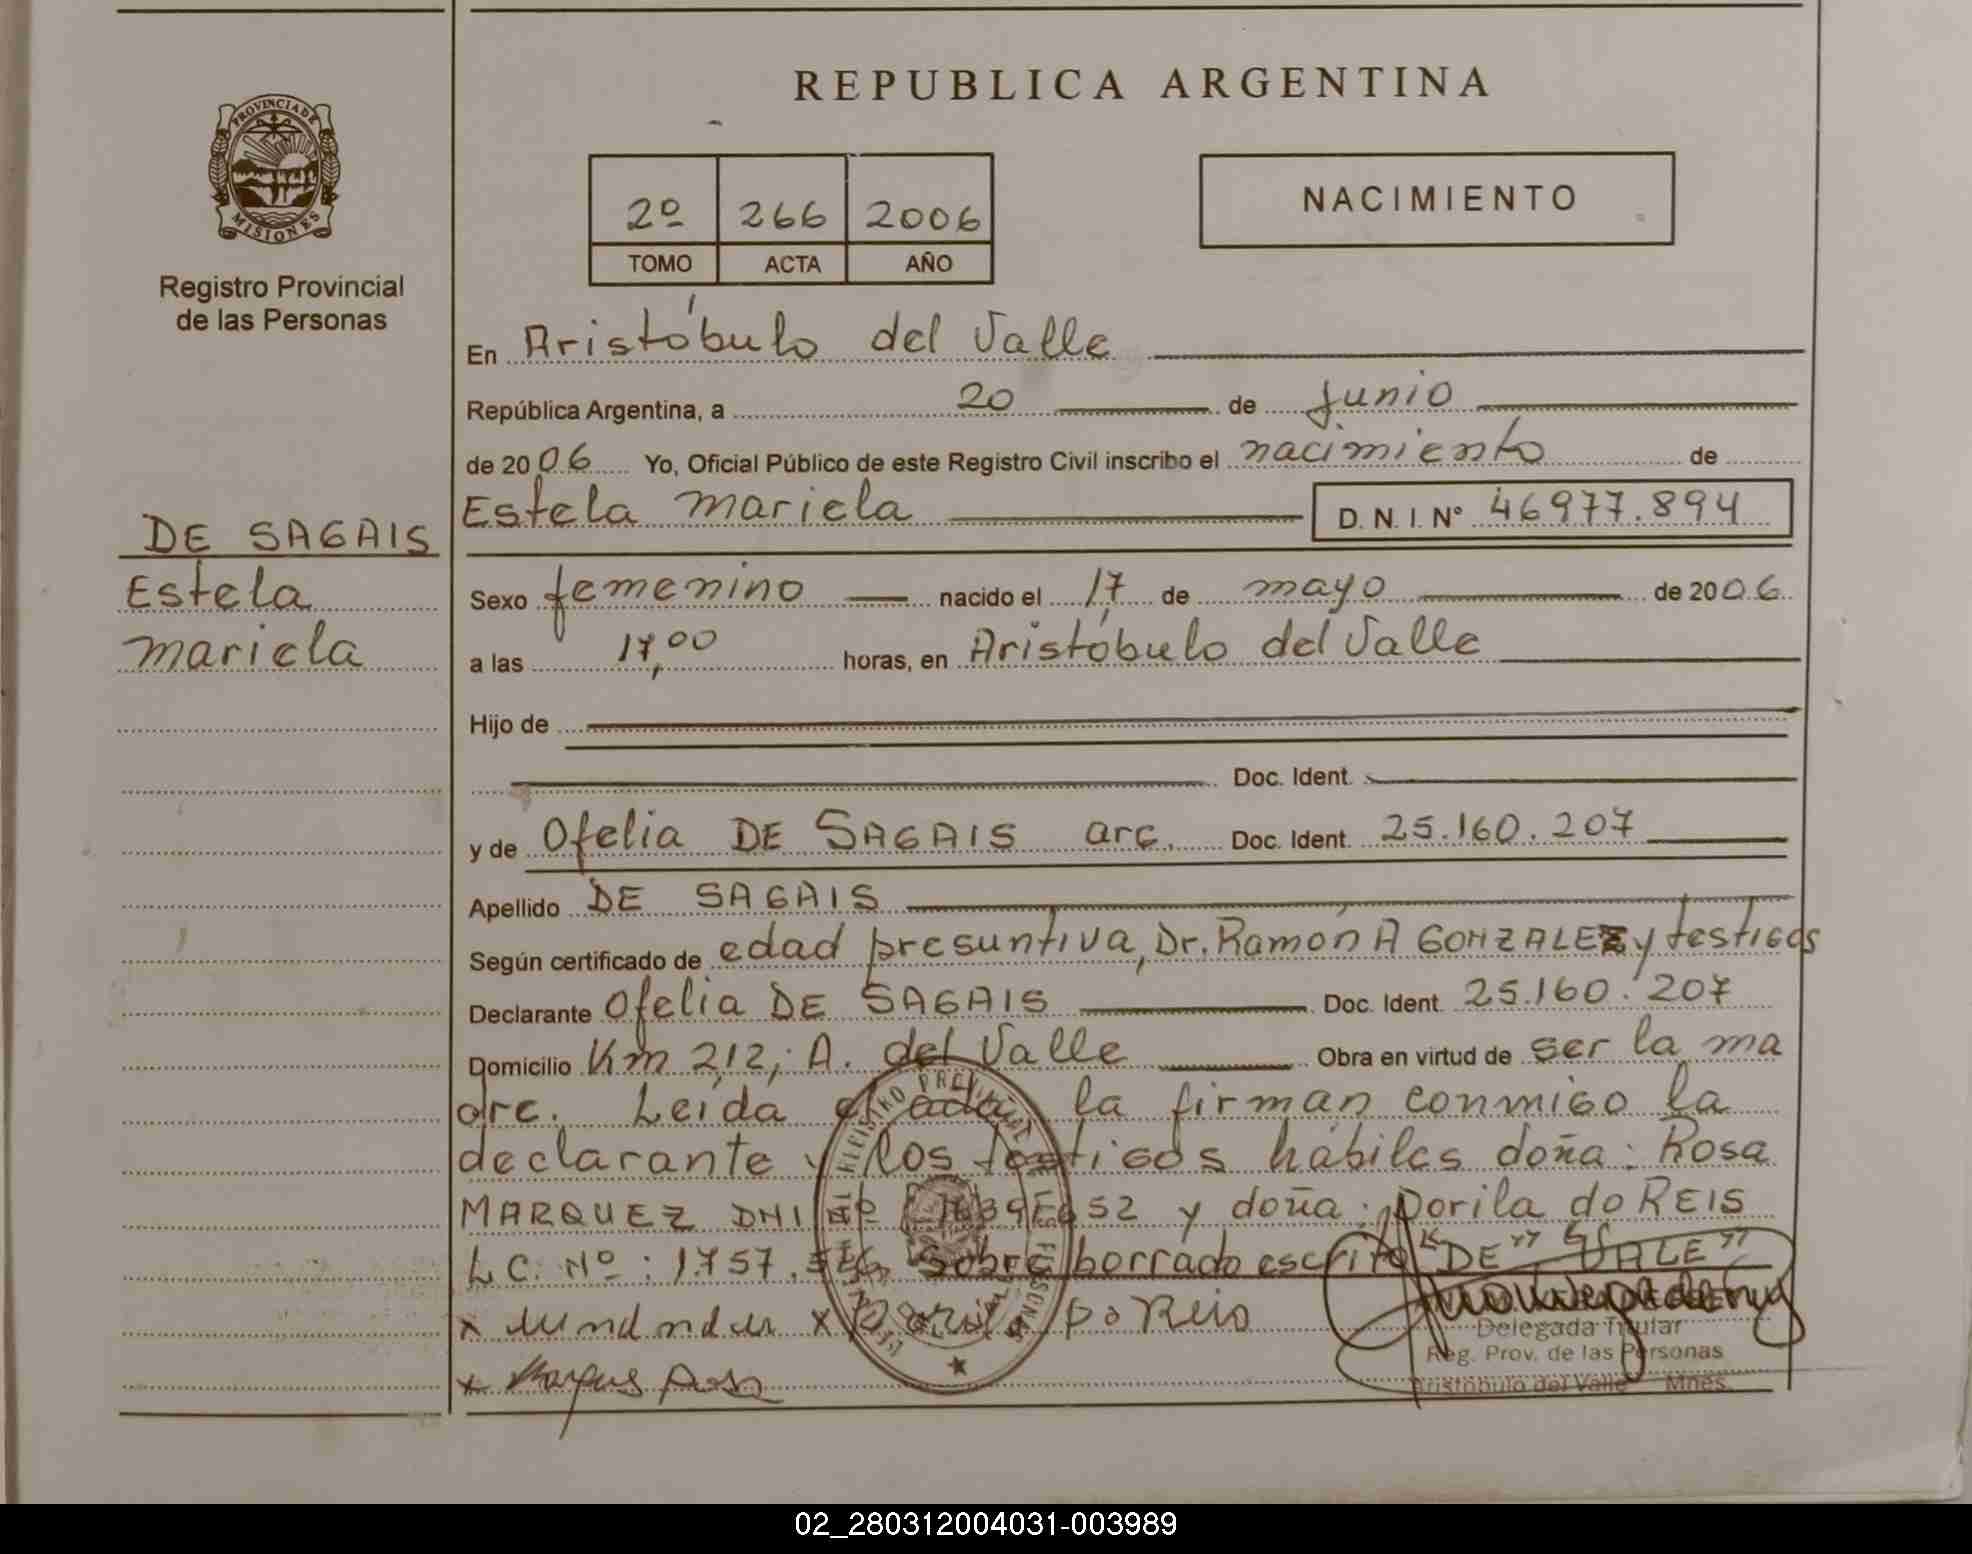 REPUBLICA ARGENTINA
PROVINCIA DE MISIONES
Registro Provincial
de las Personas
2º 266 2006
TOMO ACTA AÑO
NACIMIENTO
En Aristóbulo del Valle
República Argentina, a 20 de junio
de 2006 Yo, Oficial Público de este Registro Civil inscribo el nacimiento de
Estela Mariela D. N. I. Nº 46977.894
DE SAGAIS
Estela
Mariela
Sexo femenino nacido el 17 de mayo de 2006
a las 17,00 horas, en Aristóbulo del Valle
Hijo de
Doc. Ident.
y de Ofelia DE SAGAIS arg. Doc. Ident. 25.160.207
Apellido DE SAGAIS
Según certificado de edad presuntiva, Dr. Ramón A GONZALEZ y testigos
Declarante Ofelia DE SAGAIS Doc. Ident. 25.160.207
Domicilio Km 212, A. del Valle Obra en virtud de ser la ma
dre. Leida el acta, la firman conmigo la
declarante y los testigos hábiles doña: Rosa
MARQUEZ DNI Nº y doña: Dorila do REIS
L C. Nº: 1.757. Sobre borrado escrito "DE" "VALE"
Delegada Titular
Reg. Prov. de las Personas
Aristóbulo del Valle Mnes.
02_280312004031-003989